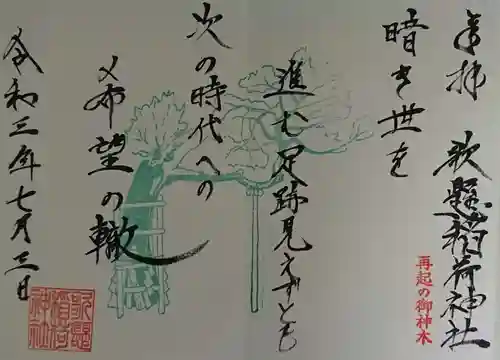 奉拝
歌懸稲荷神社
再起の御神木
暗き世を
進む足跡見えずとも
次の時代への
〆希望の轍
令和三年七月三日
歌懸稲荷神社